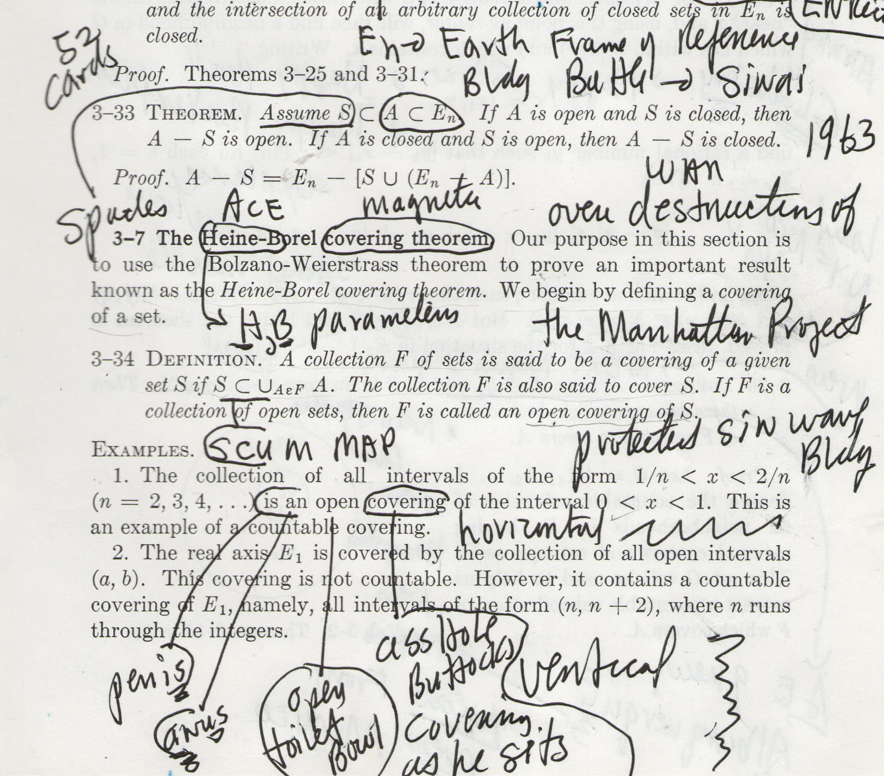 and the intersection of an arbitrary collection of closed sets in E_n is
closed.
En → Earth Frame of Reference
Bldg Battle → Sinai
52
cards
Proof. Theorems 3–25 and 3–31.
3–33 THEOREM. Assume S ⊂ A ⊂ E_n. If A is open and S is closed, then
A − S is open. If A is closed and S is open, then A − S is closed.
1963
Proof. A − S = E_n − [S ∪ (E_n − A)].
WAR
Spades ACE magnetic over destructions of
3–7 The Heine-Borel covering theorem. Our purpose in this section is
to use the Bolzano-Weierstrass theorem to prove an important result
known as the Heine-Borel covering theorem. We begin by defining a covering
of a set.
H, B parameters the Manhattan Project
3–34 DEFINITION. A collection F of sets is said to be a covering of a given
set S if S ⊂ ∪_{AεF} A. The collection F is also said to cover S. If F is a
collection of open sets, then F is called an open covering of S.
EXAMPLES. SCUM MAP protected sin wave
Bldg
1. The collection of all intervals of the form 1/n < x < 2/n
(n = 2, 3, 4, . . .) is an open covering of the interval 0 < x < 1. This is
an example of a countable covering.
horizontal
2. The real axis E_1 is covered by the collection of all open intervals
(a, b). This covering is not countable. However, it contains a countable
covering of E_1, namely, all intervals of the form (n, n + 2), where n runs
through the integers.
penis
anus
open
toilet
Bowl
asshole
Buttocks
covering
as he sits
vertical